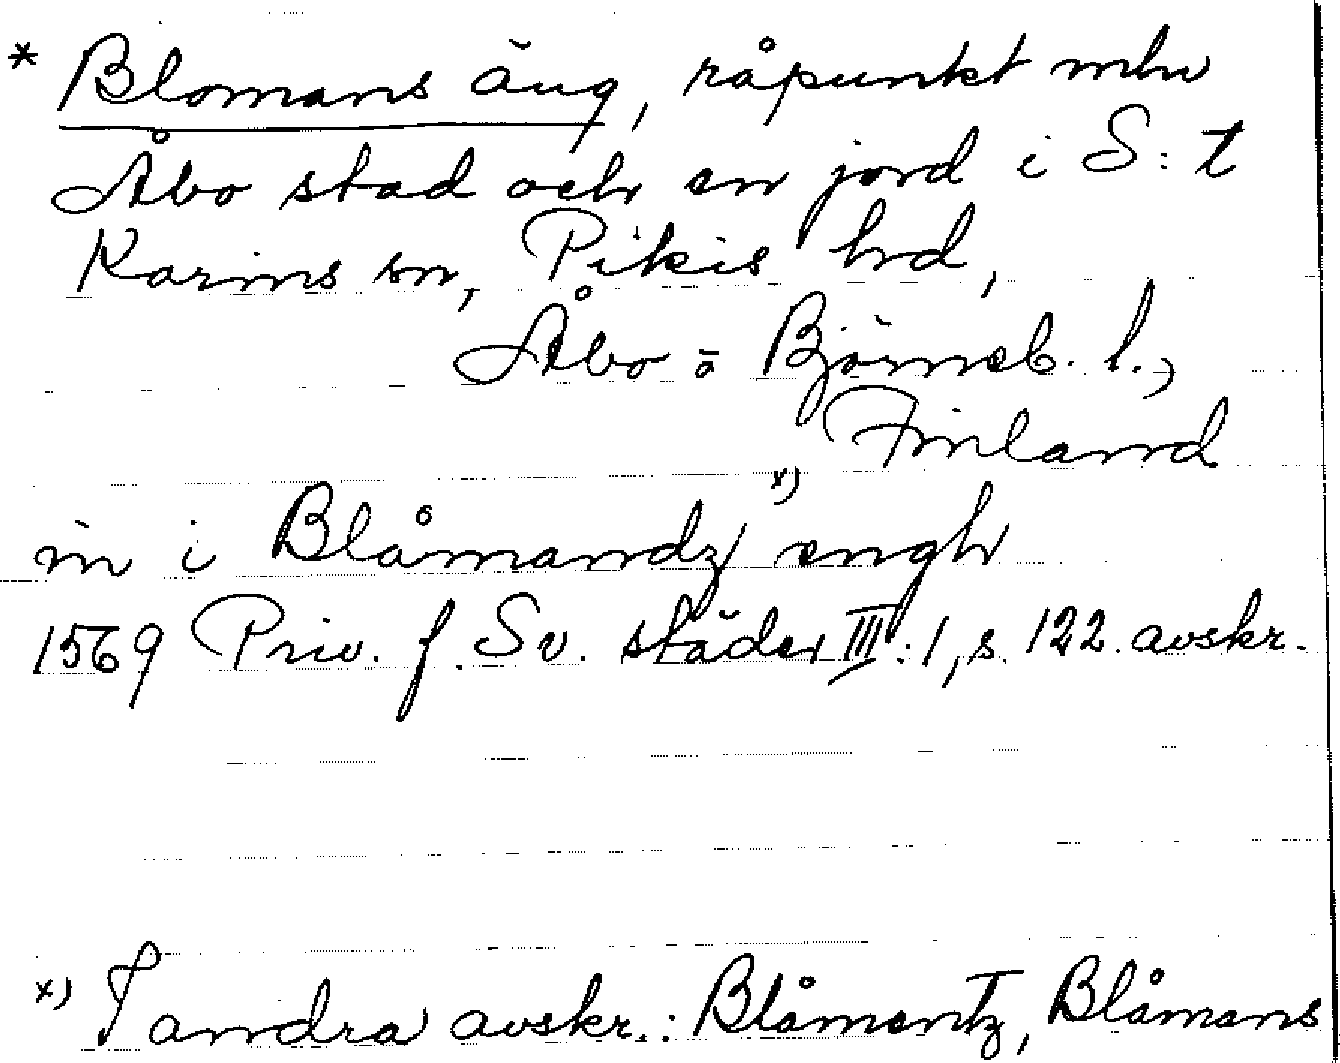 * Blomans äng, råpunkt mln
Åbo stad och en jord i S:t
Karins sn, Pikis hd,
Åbo o Björneb. l.,
Finland
in i Blåmandz x) engh
1569 Priv. f. Sv. städer III:1, s. 122 avskr.
x) I andra avskr.: Blåmentz, Blåmans